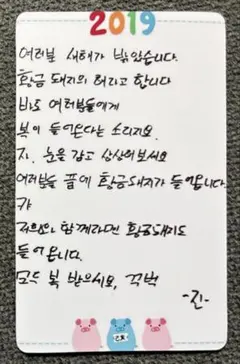 2019
여러분 새해가 밝았습니다.
황금 돼지의 해라고 합니다
바로 여러분들에게
복이 들어온다는 소리지요.
자, 눈을 감고 상상해보세요
여러분들 꿈에 황금돼지가 들어옵니다.
캬
저희와 함께라면 황금돼지도
들어옵니다.
모두 복 받으세요, 꾸벅
-진-